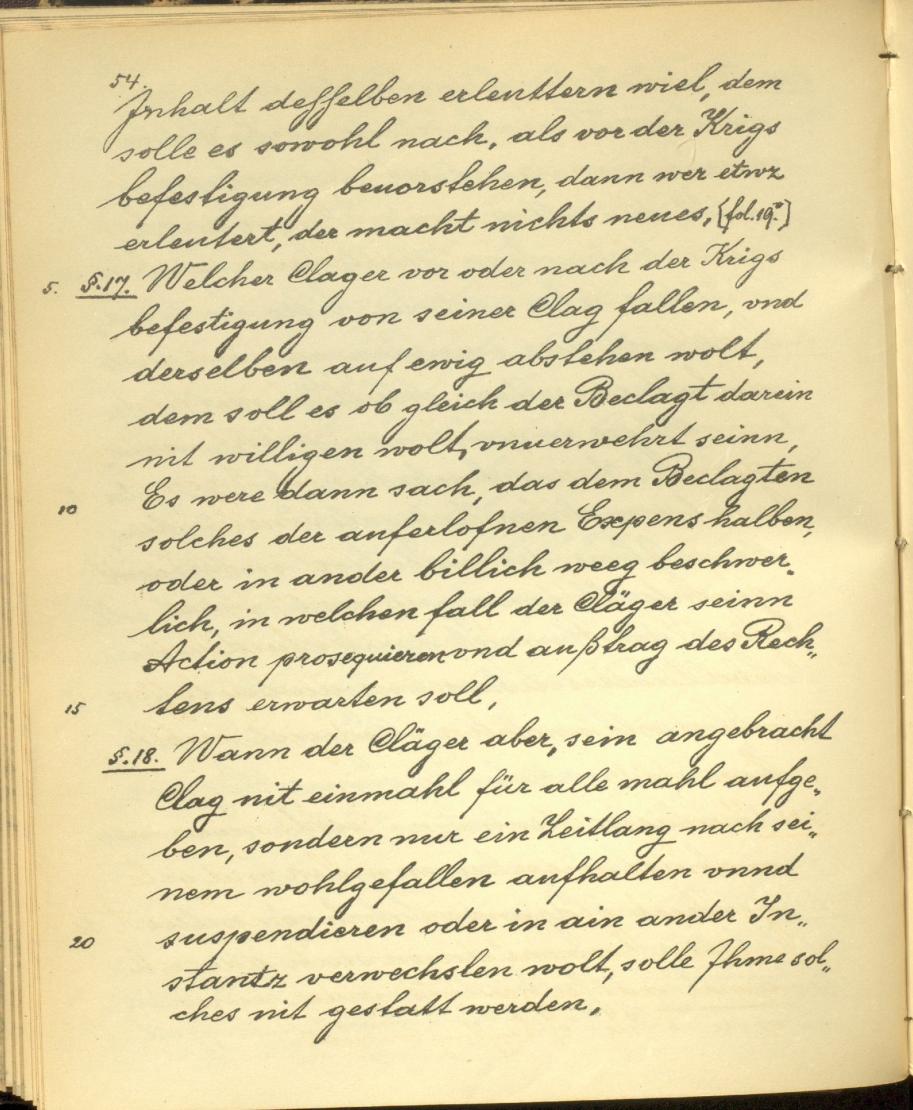 54.
Inhalt desselben erleuttern wiel, dem
solle es sowohl nach, als vor der Krigs
befestigung beuorstehen, dann wer etwz
erleutert, der macht nichts neues, [fol. 19.]
5. §.17. Welcher Clager vor oder nach der Krigs
befestigung von seiner Clag fallen, vnd
derselben auf ewig abstehen wolt,
dem soll es ob gleich der Beclagt darein
nit willigen wolt, vnuerwehrt seinn,
10 Es were dann sach, das dem Beclagten
solches der auferlofnen Expens halben,
oder in ander billich weeg beschwer„
lich, in welchen fall der Cläger seinn
Action prosequieren vnd außtrag des Rech„
15 tens erwarten soll,
§.18. Wann der Cläger aber, sein angebracht
Clag nit einmahl für alle mahl aufge„
ben, sondern nur ein Zeitlang nach sei„
nem wohlgefallen aufhalten vnnd
20 suspendieren oder in ain ander In„
stantz verwechslen wolt, solle Ihme sol„
ches nit gestatt werden,